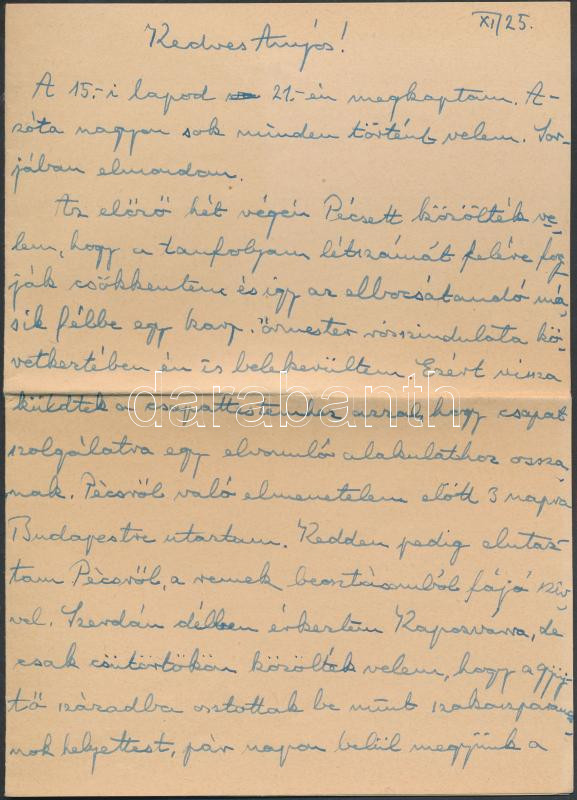 XI/25.
Kedves Anyós!
A 15.-i lapod 21.-én megkaptam. A-
zóta nagyon sok minden történt velem. Sor-
jában elmondom.
Az előző hét végén Pécsett közölték ve-
lem, hogy a tanfolyam létszámát felére fog-
ják csökkenteni és így az elbocsátandó má-
sik félbe egy karp. őrmester rosszindulata kö-
vetkeztében én is belekerültem. Ezért vissza
küldtek a csapattestemhez azzal, hogy csapat
szolgálatra egy elvonuló alakulathoz ossza
nak. Pécsről való elmenetelem előtt 3 napra
Budapestre utaztam. Kedden pedig elutaz
tam Pécsről, a remek beosztásomból fájó szív
vel. Szerdán délben érkeztem Kaposvárra, de
csak csütörtökön közölték velem, hogy a gyüj-
tő századba osztottak be mint szakaszparancs
nok helyettest, pár napon belül megyünk a
darabanth